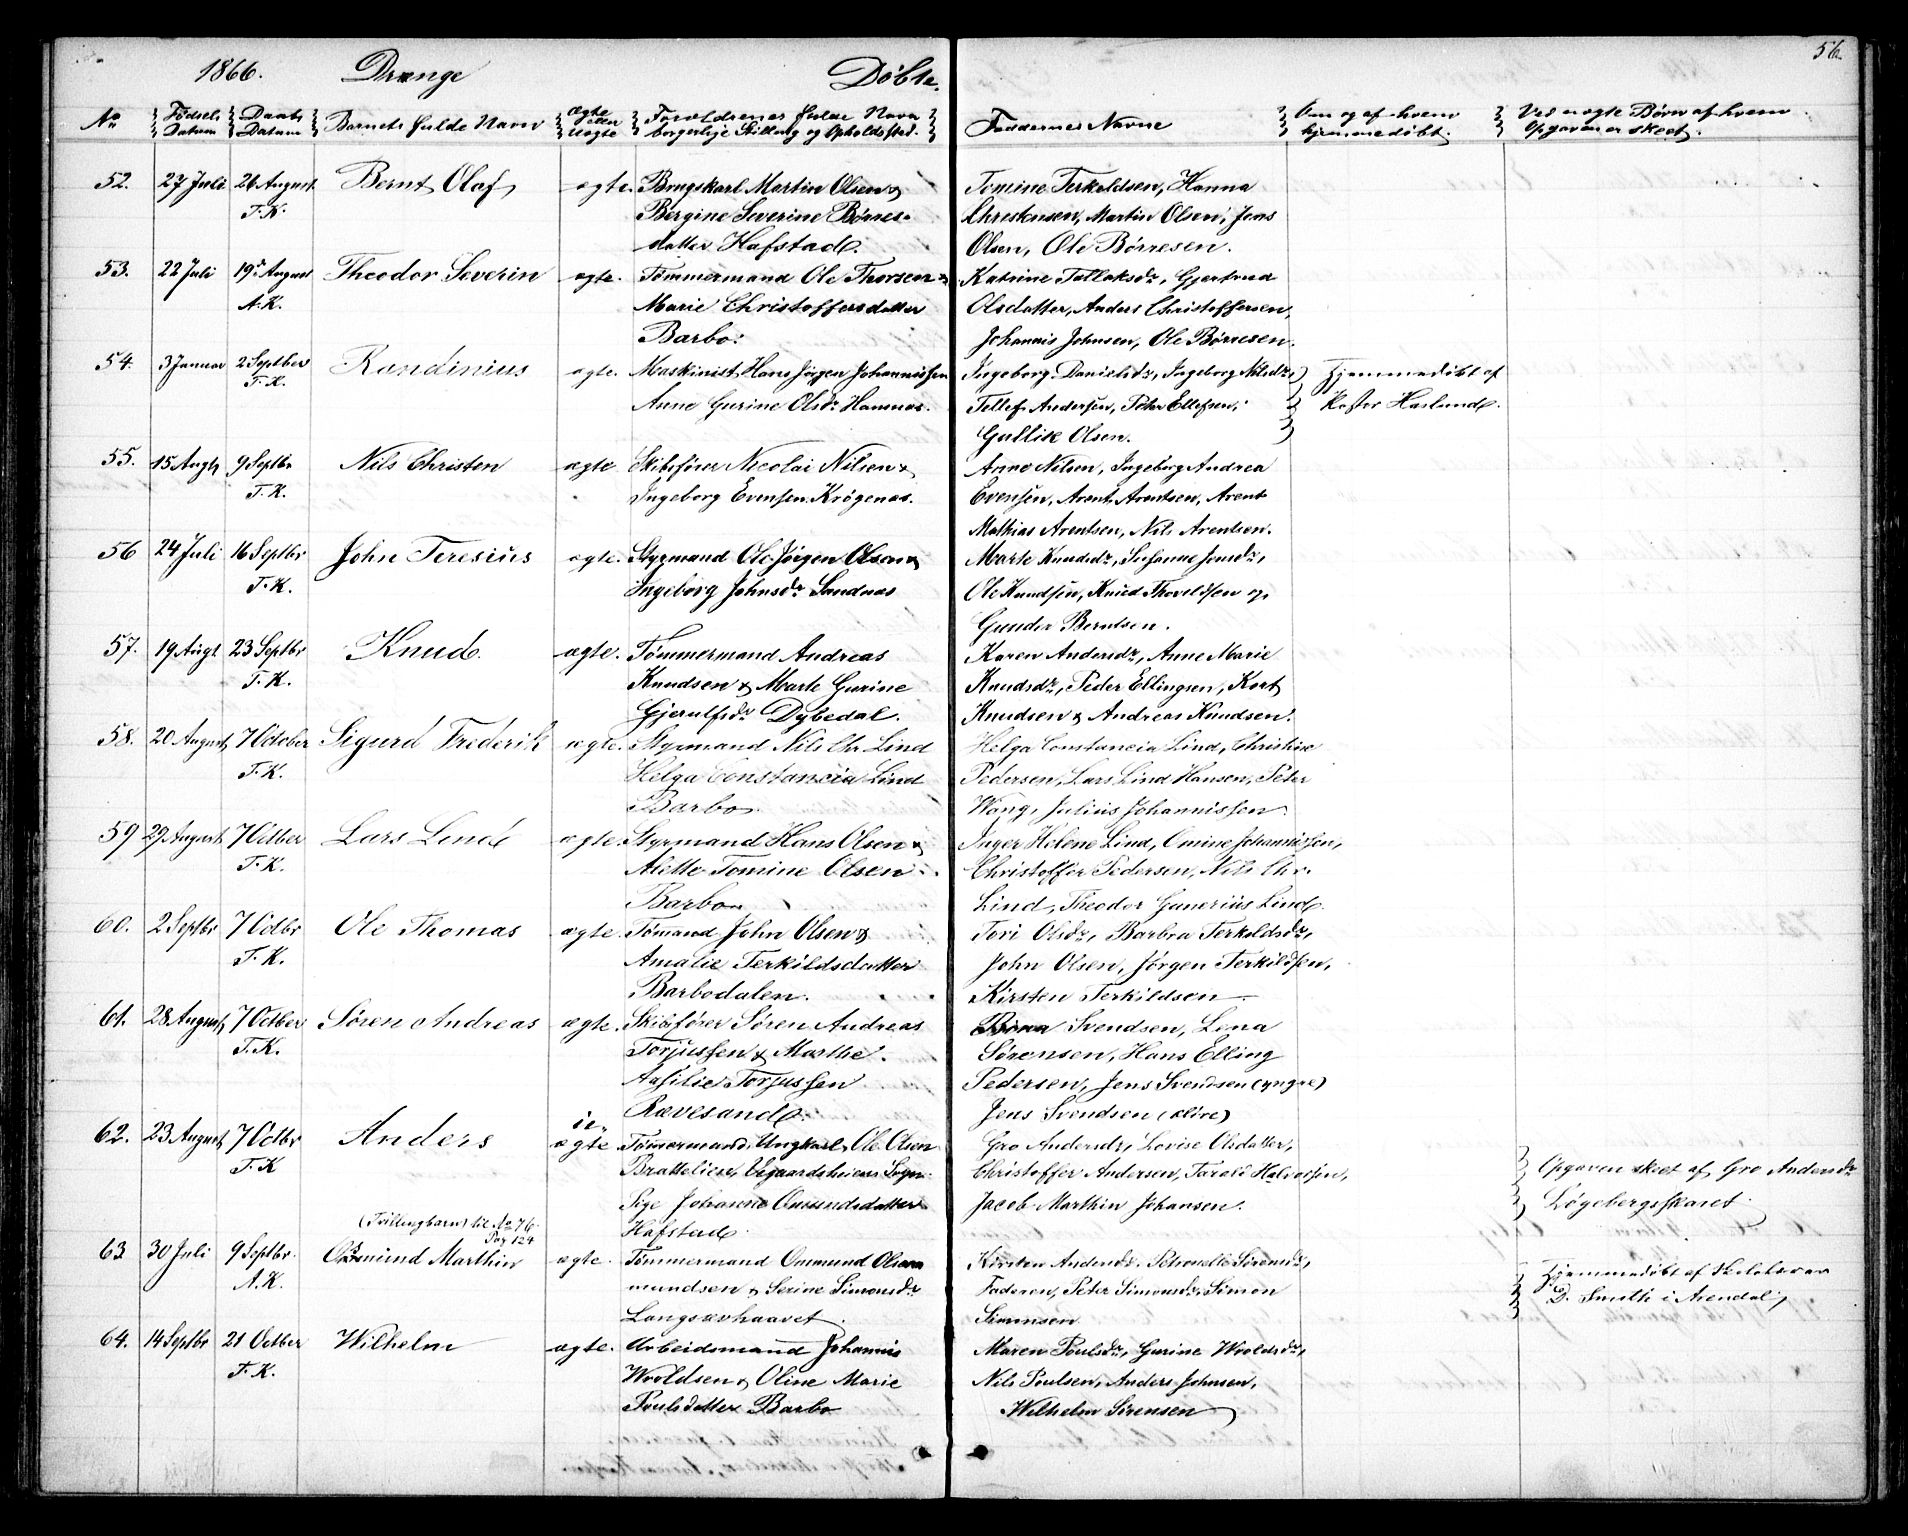 1866. Drenge Døbte. 56.
No Fødsels Datum Daabs Datum Barnets fulde Navn ægte eller uægte Forældrenes fulde Navn borgerlige Stilling og Opholdsted. Faddernes Navne Om og af hvem hjemmedøbt. Ved uægte Børn af hvem Opgaven er skeet.
52. 27 Juli 26 August Bernt Olaf ægte. Brugskarl Martin Olsen & Tomine Terkeldsen, Hanna
T.K. Bergine Severine Børres- Christensen, Martin Olsen, Jens
datter Hafstad. Olsen, Ole Børresen.
53. 22 Juli 19 August Theodor Severin ægte. Tømmermand Ole Thorsen & Katrine Tellaksdr, Gjertrud
A.K. Marie Christoffersdatter Olsdatter, Anders Christoffersen,
Barbo. Johannis Johnsen, Ole Børresen.
54. 3 Januar 2 Septber Randinius ægte. Maskinist Hans Jørgen Johannissen Ingeborg Danielsdr, Ingeborg Nilsdr, Hjemmedøbt af
T.K. Anne Gurine Olsdr Hamnas. Tellef Andersen, Peter Ellefsen, Kaster Haslund.
Gullik Olsen.
55. 15 Augt 9 Septbr Nils Christen ægte Skibsfører Nicolai Nilsen & Anne Nilsen, Ingeborg Andrea
T.K. Ingeborg Evensen Krøgenæs. Evensen, Arent Arentsen, Arent
Mathias Arentsen, Nils Arentsen.
56 24 Juli 16 Septbr John Teresius ægte. Styrmand Ole Jørgen Olsen & Marte Knudsdr, Susanne Jensdr,
T.K. Ingeborg Johnsdr Sandnæs Ole Knudsen, Knud Thoveldsen og
Gunder Berntsen.
57. 19 Augt 23 Septbr Knud. ægte. Tømmermand Andreas Karen Andersdr, Anne Marie
T.K. Knudsen & Marte Gurine Knudsdr, Peder Ellingsen, Kort
Gjerulfsdr Dybedal. Knudsen & Andreas Knudsen.
58. 20 August 7 October Sigurd Frederik ægte. Styrmand Nils Chr. Lind Helga Constancia Lind, Christine
T.K. Helga Constancia Lind Pedersen, Lars Lind Hansen, Peter
Barbo. Wang, Julius Johannissen.
59 29 August 7 Octber Lars Lind ægte. Styrmand Hans Olsen & Inger Helene Lind, Omine Johannissen,
T.K. Alette Tomine Olsen Christoffer Pedersen, Nils Chr.
Barbo Lind, Theodor Gunerius Lind.
60. 2 Septbr 7 Octbr Ole Thomas ægte. Tømmand John Olsen & Tori Olsdr, Barbra Terkeldsdr,
T.K. Amalie Terkildsdatter John Olsen, Jørgen Terkildsen,
Barbodalen. Kirsten Terkildsen
61. 28 August 7 Octber Søren Andreas ægte. Skibsfører Søren Andreas Svendsen, Lena
T.K. Torjussen & Marthe Sørensen, Hans Elling
Aasilie Torjussen Pedersen, Jens Svendsen (yngre)
Rævesand. Jens Svendsen (eldre)
62. 23 August 7 Octbr Anders ægte Tømmermand, Ungkarl Ole Olsen Gro Andersdr, Lovise Olsdatter,
T.K Brattelien, Vegaardsheiens Sogn Christoffer Andersen, Tarald Halvorsen, Opgaven skeet af Gro Andersdr
Pige Johanne Omundsdatter Jacob Marthin Johansen. Løgebergsskaret
Hafstad.
(Tvillingbarn) til No 76. Pag 124
63 30 Juli 9 Septbr. Osmund Marthin ægte. Tømmermand Ommund Kirsten Andersdr, Petronelle Sørensdr, Hjemmedøbt af Skolelærer
A.K. mundsen & Serine Simonsdr Faderen, Peter Simonsdr, Simon D. Smith i Arendal
Langsævhaavet. Simonsen
64. 14 Septbr 21 Octber Wilhelm ægte. Arbeidsmand Johannis Maren Poulsdr, Gurine Wroldsdr,
T.K. Wroldsen & Oline Marie Nils Poulsen, Anders Johnsen,
Poulsdatter Barbo Wilhelm Sørensen